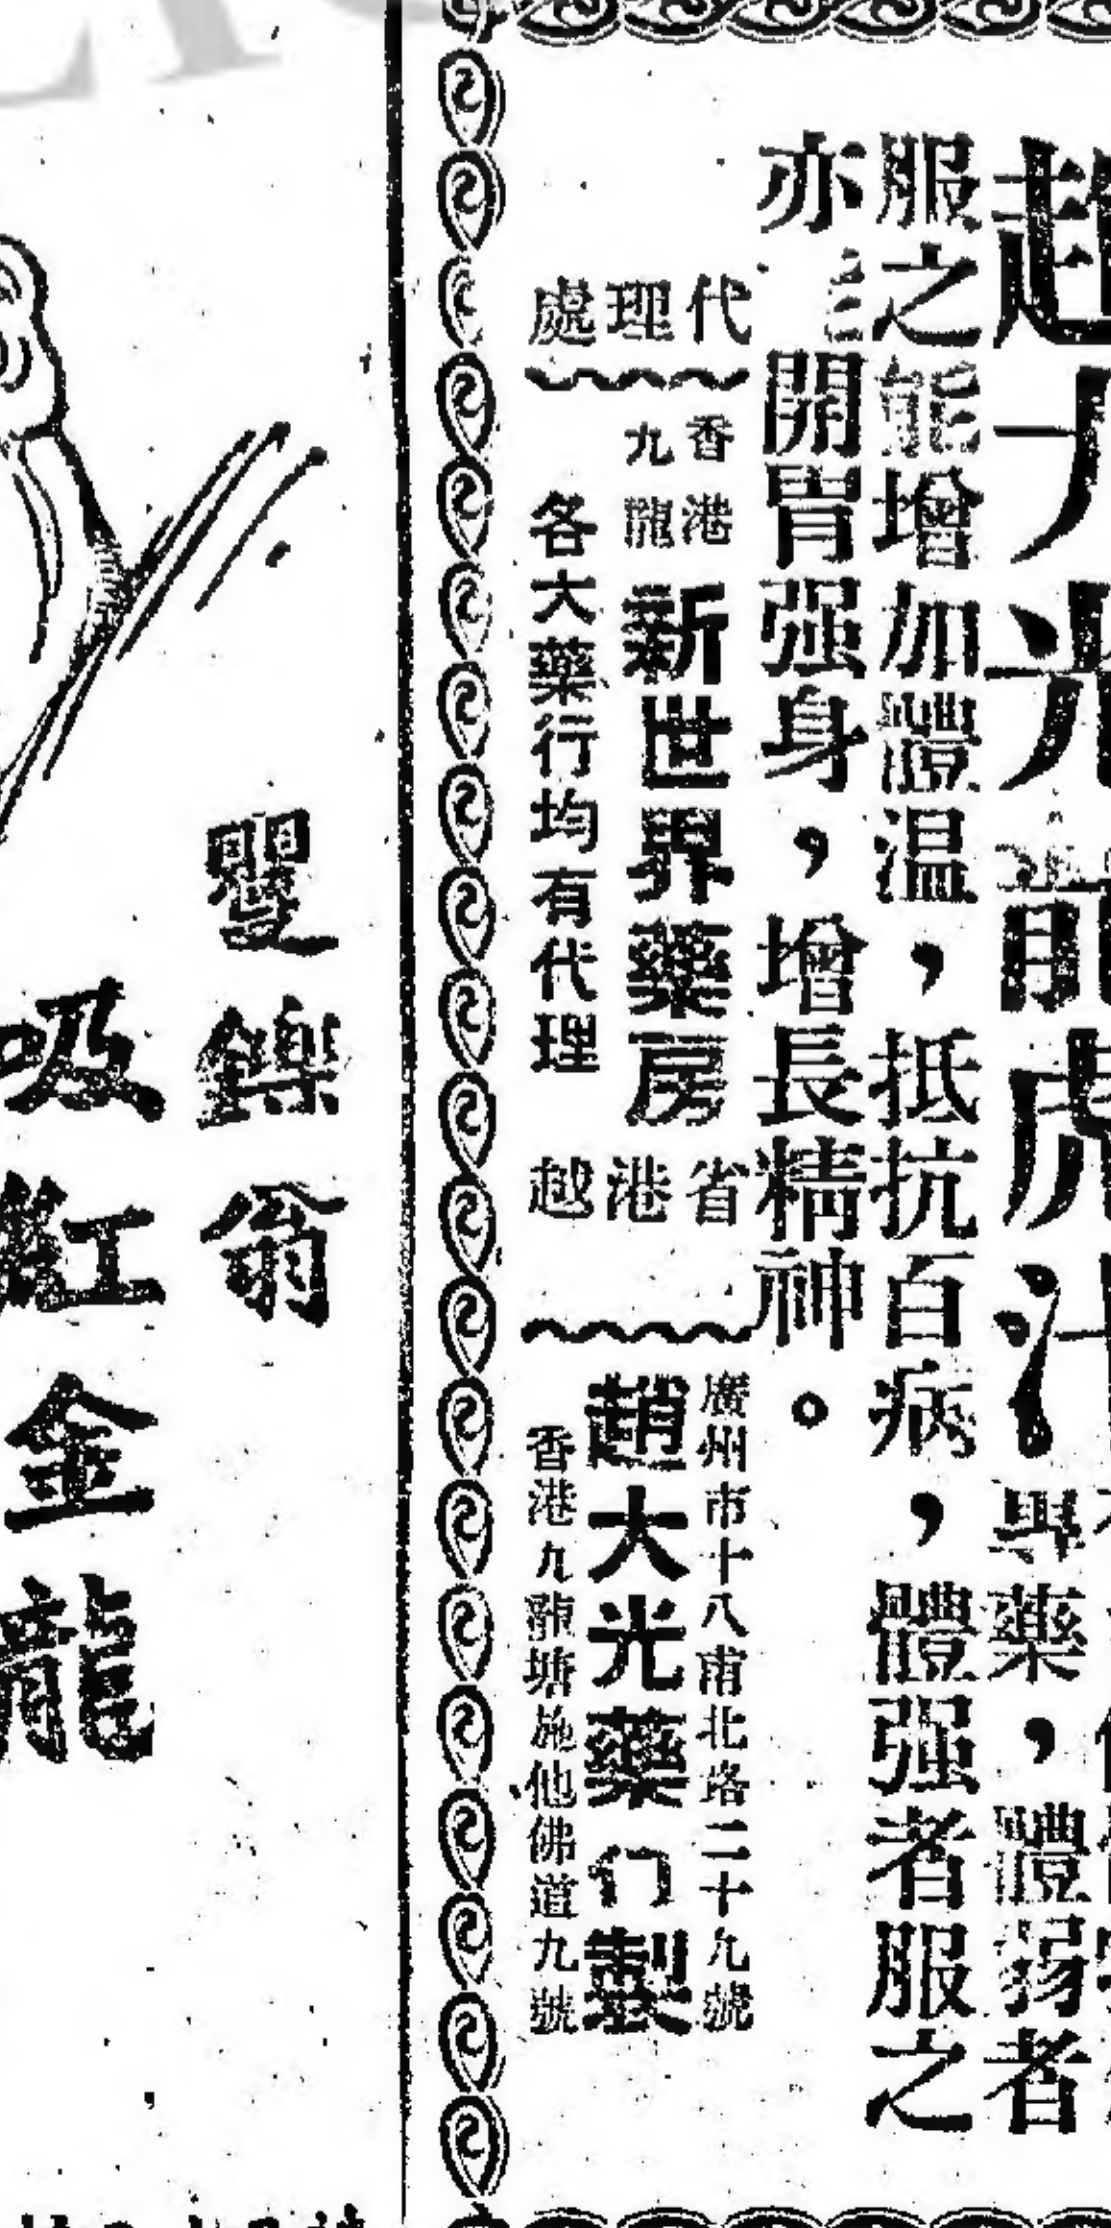 趙大光龍虎汁
藥，體弱者
服之能增加體温，抵抗百病，體强者服之
亦 開胃强身，增長精神。
代理處
香港
九龍
新世界藥房
各大藥行均有代理
省港越
廣州市十八甫北路二十九號
趙大光藥行製
香港九龍塘施他佛道九號
矍鑠翁
吸紅金龍